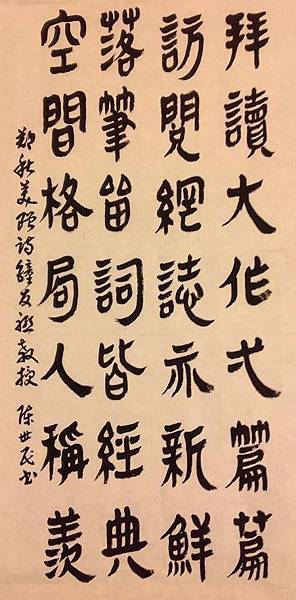 拜讀大作弌篇篇
訪閱網誌亦新鮮
落筆留詞皆經典
空間格局人稱羨
鄭秋美詩鐘友聯教授 陳世民書